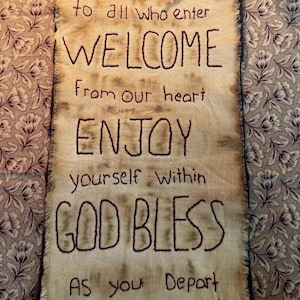 to all who enter
WELCOME
From our heart
ENJOY
yourself within
GOD BLESS
As you Depart